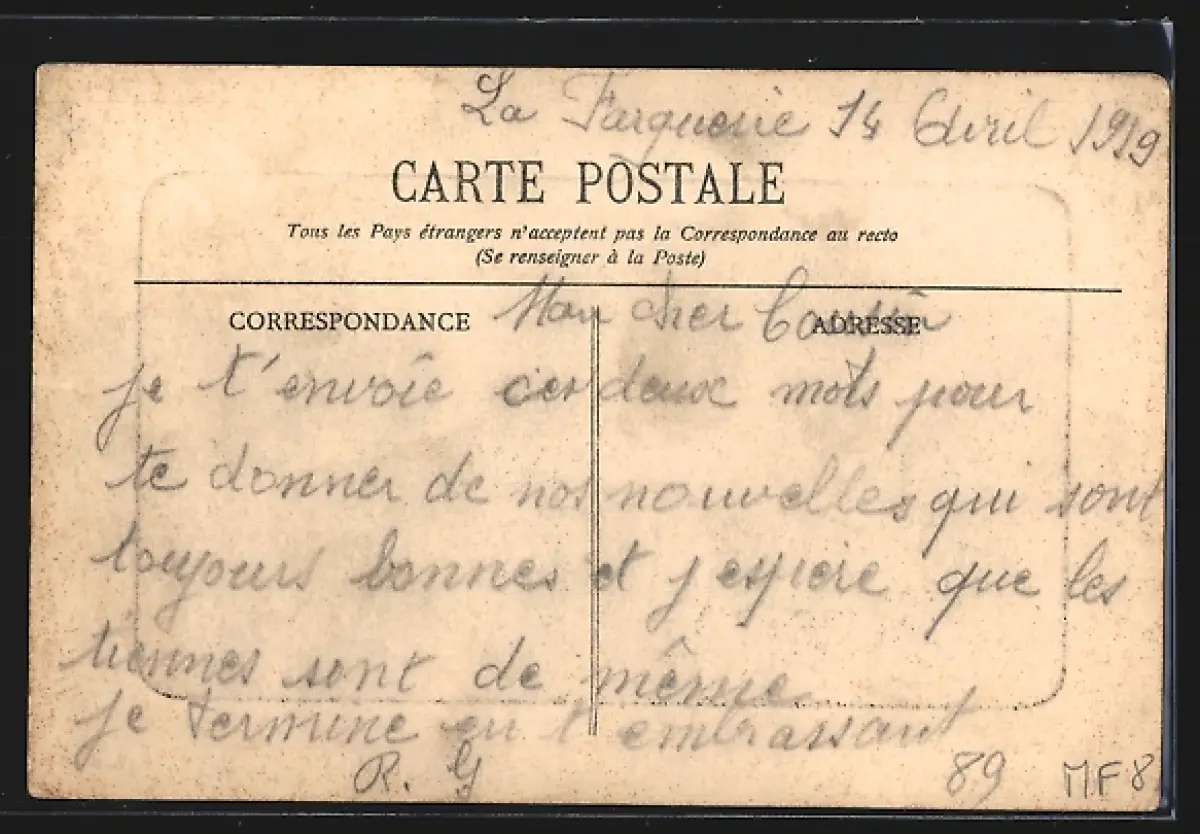 La Farguerie 14 Avril 1919
CARTE POSTALE
Tous les Pays étrangers n'acceptent pas la Correspondance au recto
(Se renseigner à la Poste)
CORRESPONDANCE ADRESSE
Mon cher Cousin
je t'envoie ces deux mots pour
te donner de nos nouvelles qui sont
toujours bonnes et j espère que les
tiennes sont de même
je termine en t embrassant
R. G
89 MF8